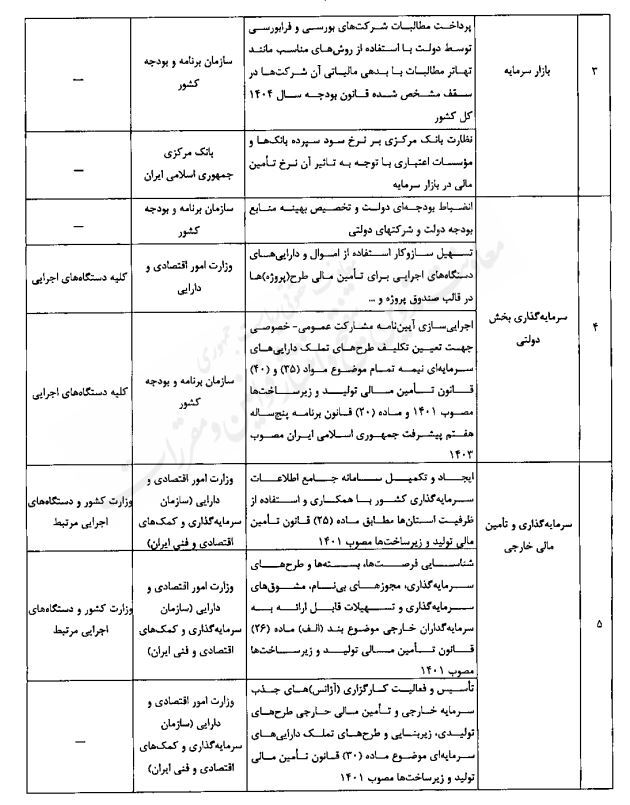 ۳
بازار سرمایه
پرداخت مطالبات شرکت‌های بورسی و فرابورسی
توسط دولت با استفاده از روش‌های مناسب مانند
تهاتر مطالبات با بدهی مالیاتی آن شرکت‌ها در
سقف مشخص شده قانون بودجه سال ۱۴۰۴
کل کشور
سازمان برنامه و بودجه
کشور
—
نظارت بانک مرکزی بر نرخ سود سپرده بانک‌ها و
مؤسسات اعتباری با توجه به تاثیر آن نرخ تأمین
مالی در بازار سرمایه
بانک مرکزی
جمهوری اسلامی ایران
—
۴
سرمایه‌گذاری بخش
دولتی
انضباط بودجه‌ای دولت و تخصیص بهینه منابع
بودجه دولت و شرکتهای دولتی
سازمان برنامه و بودجه
کشور
—
تسهیل سازوکار استفاده از اموال و دارایی‌های
دستگاه‌های اجرایی برای تأمین مالی طرح(پروژه)ها
در قالب صندوق پروژه و ...
وزارت امور اقتصادی و
دارایی
کلیه دستگاه‌های اجرایی
اجرایی‌سازی آیین‌نامه مشارکت عمومی- خصوصی
جهت تعیین تکلیف طرح‌های تملک دارایی‌های
سرمایه‌ای نیمه تمام موضوع مواد (۳۵) و (۴۰)
قانون تأمین مالی تولید و زیرساخت‌ها
مصوب ۱۴۰۱ و ماده (۲۰) قانون برنامه پنج‌ساله
هفتم پیشرفت جمهوری اسلامی ایران مصوب
۱۴۰۳
سازمان برنامه و بودجه
کشور
کلیه دستگاه‌های اجرایی
۵
سرمایه‌گذاری و تأمین
مالی خارجی
ایجاد و تکمیل سامانه جامع اطلاعات
سرمایه‌گذاری کشور با همکاری و استفاده از
ظرفیت استان‌ها مطابق ماده (۲۵) قانون تأمین
مالی تولید و زیرساخت‌ها مصوب ۱۴۰۱
وزارت امور اقتصادی و
دارایی (سازمان
سرمایه‌گذاری و کمک‌های
اقتصادی و فنی ایران)
وزارت کشور و دستگاه‌های
اجرایی مرتبط
شناسایی فرصت‌ها، بسته‌ها و طرح‌های
سرمایه‌گذاری، مجوزهای بی‌نام، مشوق‌های
سرمایه‌گذاری و تسهیلات قابل ارائه به
سرمایه‌گذاران خارجی موضوع بند (الف) ماده (۲۶)
قانون تأمین مالی تولید و زیرساخت‌ها
مصوب ۱۴۰۱
وزارت امور اقتصادی و
دارایی (سازمان
سرمایه‌گذاری و کمک‌های
اقتصادی و فنی ایران)
وزارت کشور و دستگاه‌های
اجرایی مرتبط
تأسیس و فعالیت کارگزاری (آژانس)های جذب
سرمایه خارجی و تأمین مالی خارجی طرح‌های
تولیدی، زیربنایی و طرح‌های تملک دارایی‌های
سرمایه‌ای موضوع ماده (۳۰) قانون تأمین مالی
تولید و زیرساخت‌ها مصوب ۱۴۰۱
وزارت امور اقتصادی و
دارایی (سازمان
سرمایه‌گذاری و کمک‌های
اقتصادی و فنی ایران)
—